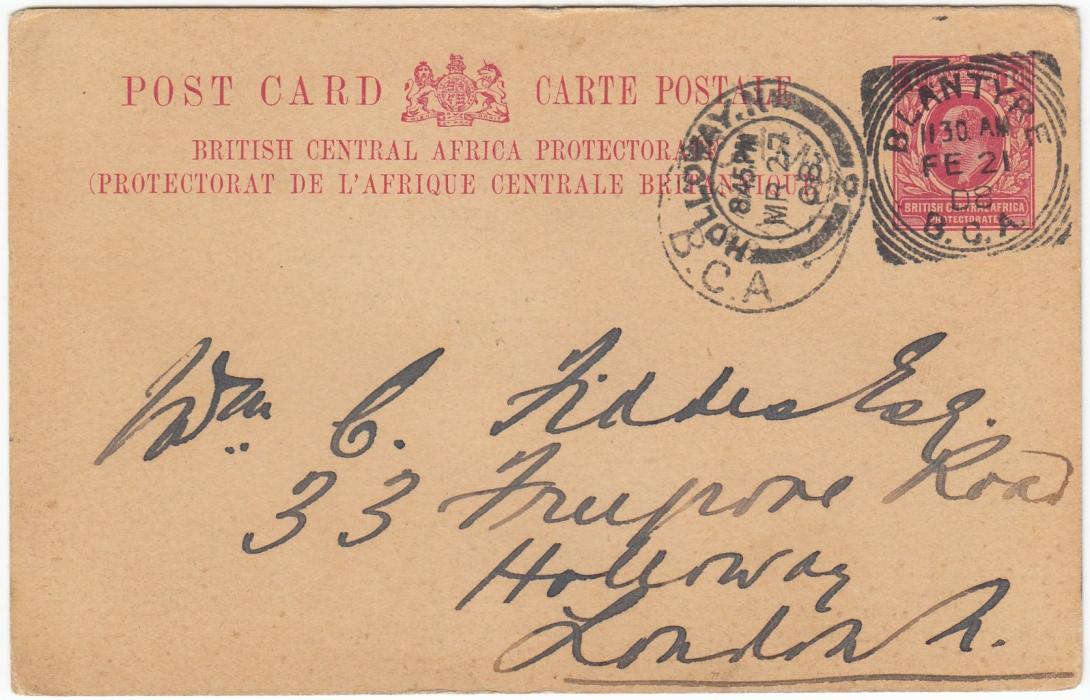 POST CARD CARTE POSTALE
BRITISH CENTRAL AFRICA PROTECTORATE
(PROTECTORAT DE L'AFRIQUE CENTRALE BRITANNIQUE)
BLANTYRE
11 30 AM
FE 21
08
B.C.A.
BRITISH CENTRAL AFRICA
PROTECTORATE
HOLLOWAY.N
8.45.PM
MR 27
08
B.C.A
Wm C. Fiddes Esq.
33 Freegrove Road
Holloway
London N.